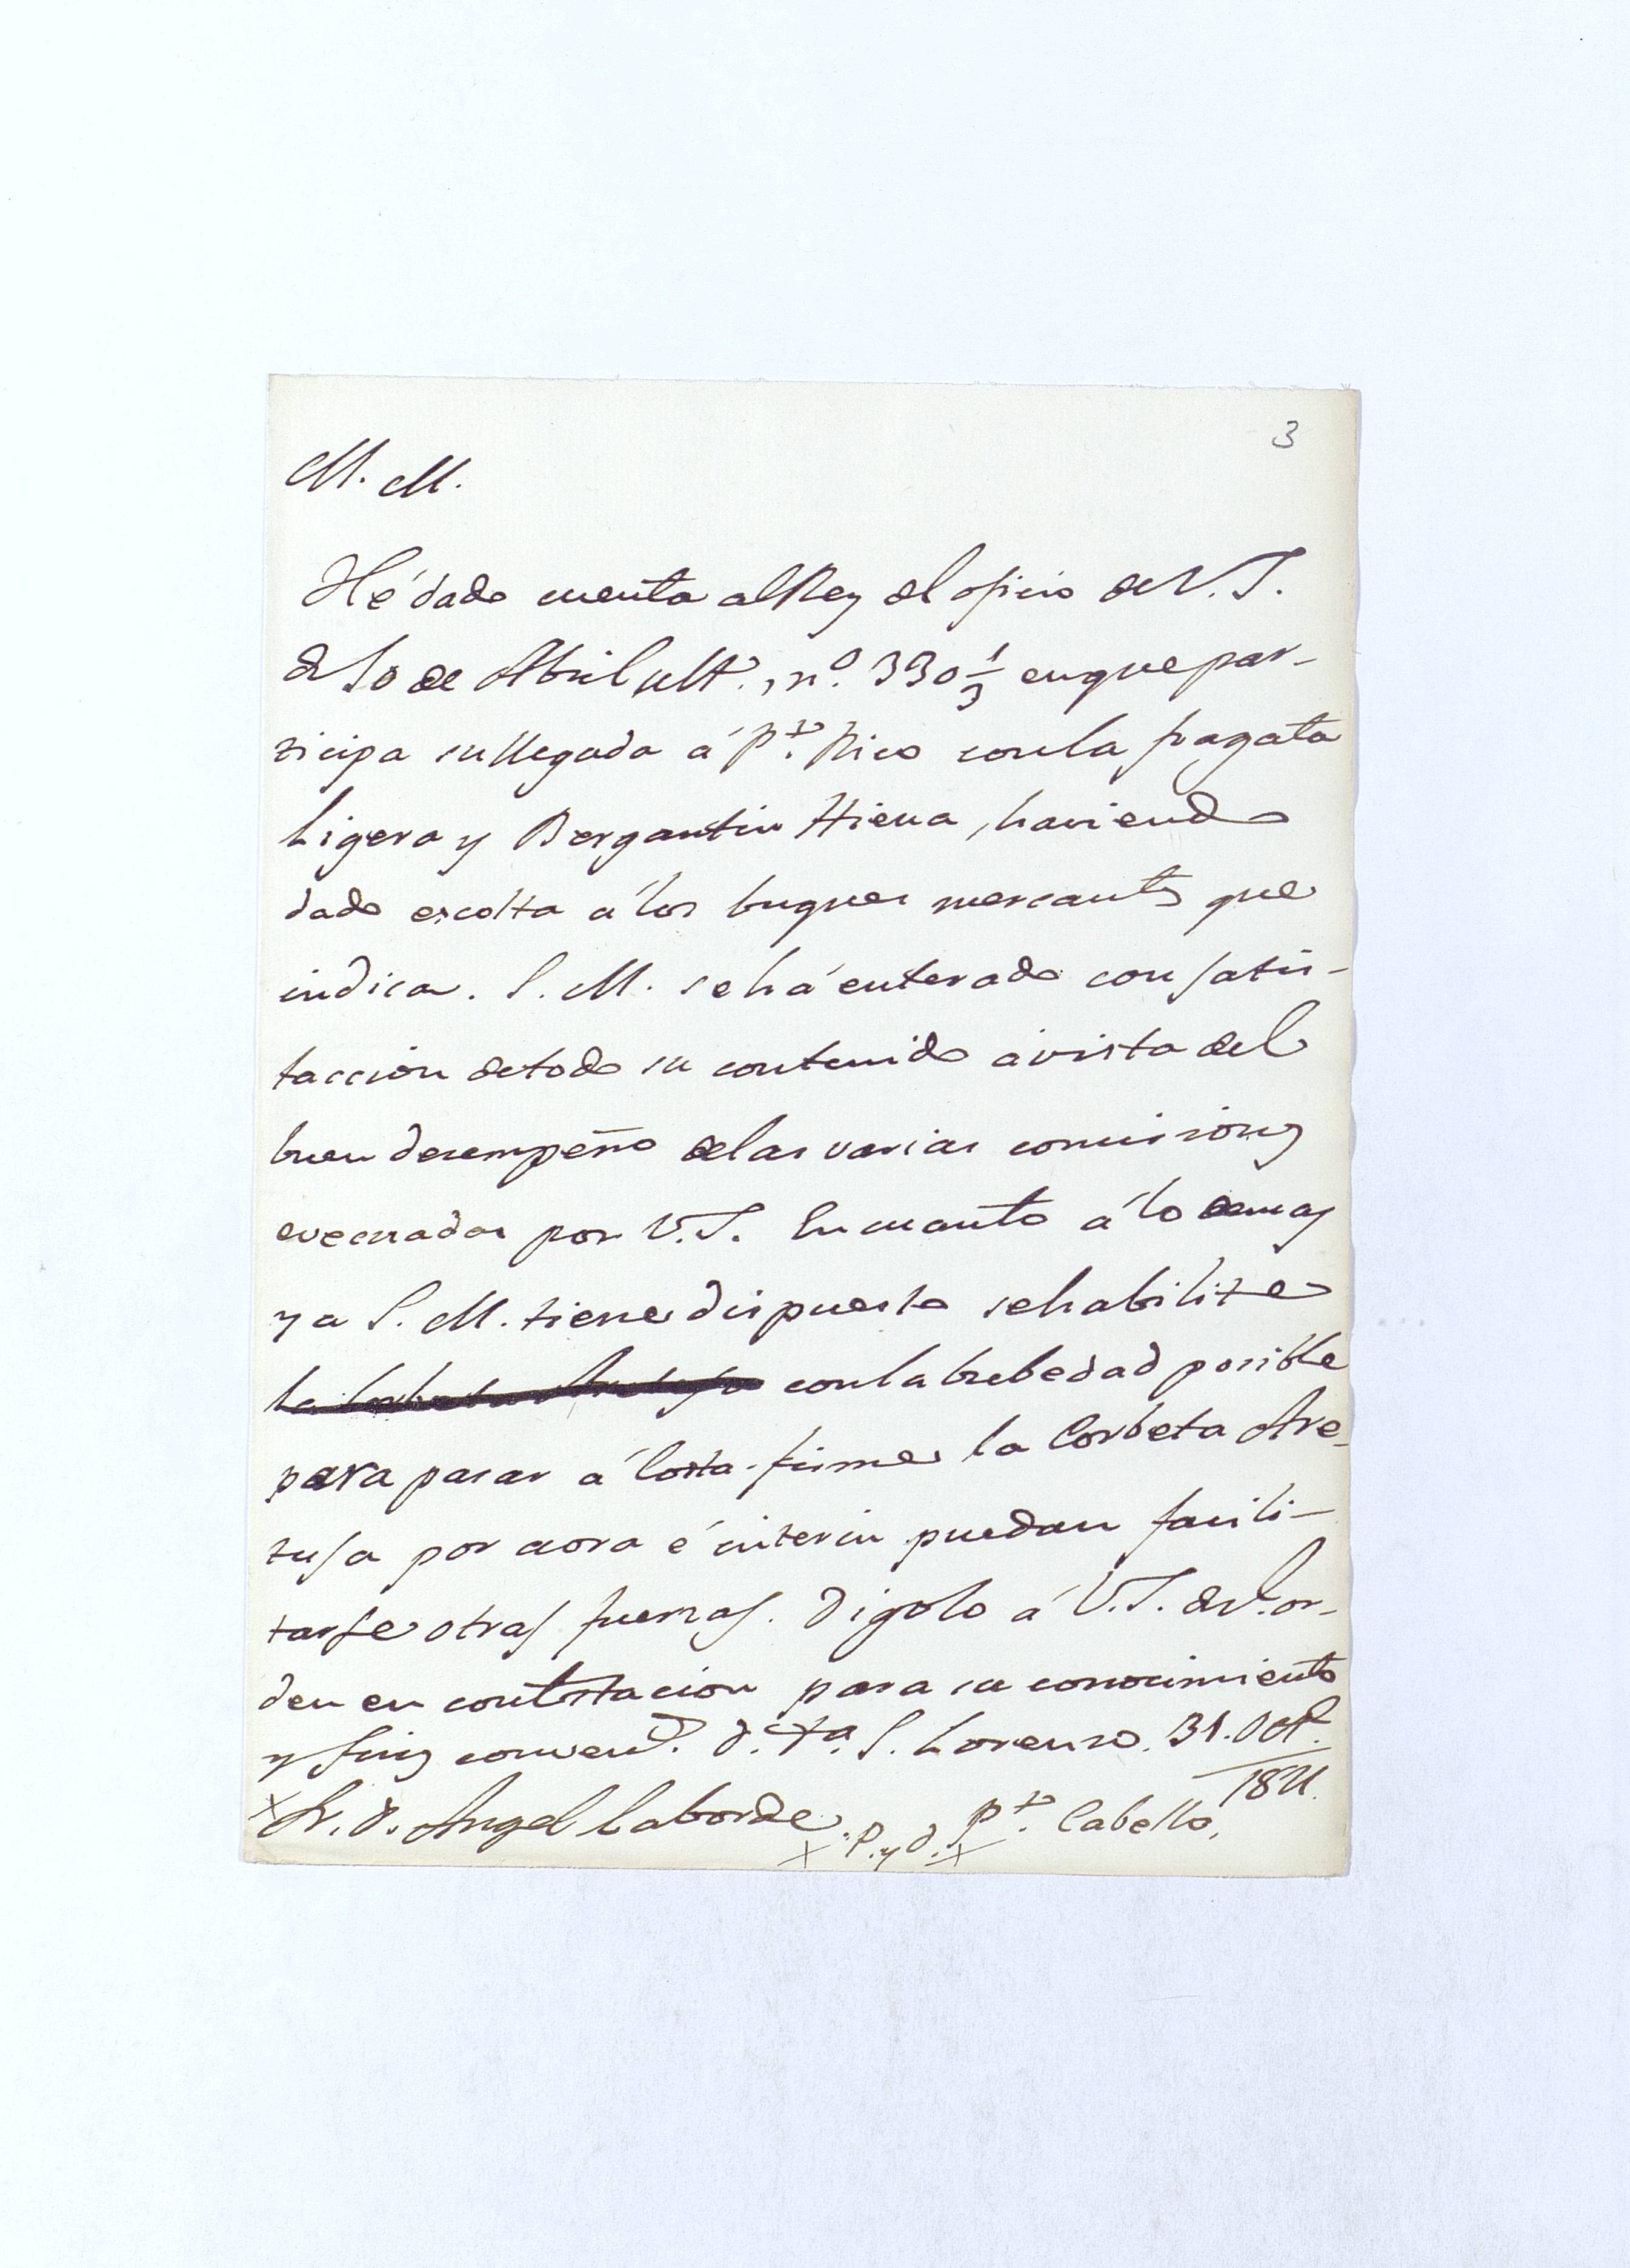 3
M. M.
Hé dado cuenta al Rey del oficio de V.S.
de 10 de Abril ult.º, nº. 330 1/3 en que par-
ticipa su llegada á Pto. Rico con la fragata
Ligera y Bergantin Hiena, haviendo
dado escolta á los buques mercantes que
indica. S. M. se há enterado con satis-
faccion de todo su contenido á vista del
buen desempeño de las varias comisiones
evacuadas por V.S. En cuanto á lo demas
ya S. M. tiene dispuesto se habilite
la Corbeta Aretusa con la brebedad posible
para pasar á Costa-firme la Corbeta Are-
tusa por aora é interin puedan facili-
tarse otras fuerzas. Digolo á V.S. de Rl. or-
den en contestacion para su conocimiento
y fines convend. S. Lorenzo. 31. Oct.
1821.
Sr. D. Angel Laborde. P. y D. Pto. Cabello.